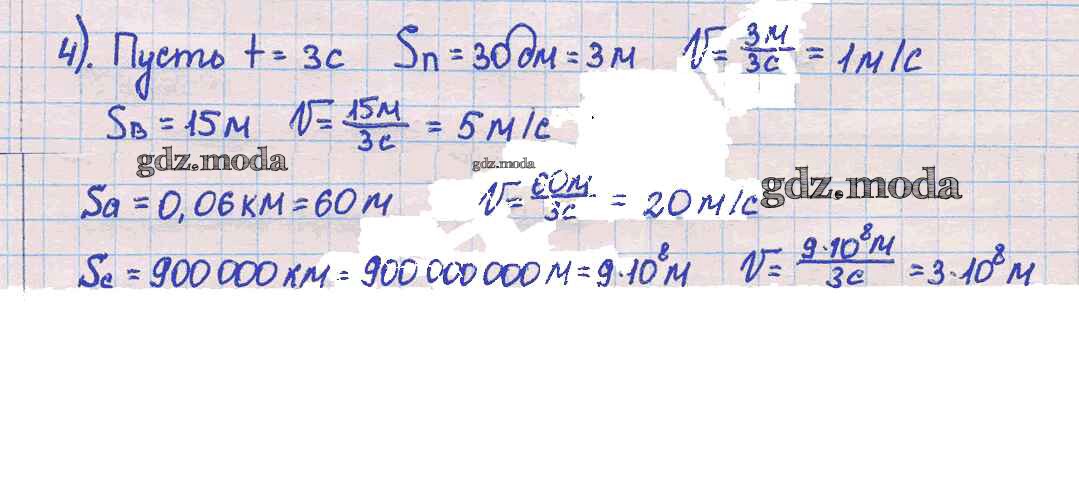 4). Пусть t = 3с Sп = 30 дм = 3 м V = 3м/3с = 1 м/с
Sв = 15 м V = 15м/3с = 5 м/с
gdz.moda gdz.moda gdz.moda
Sа = 0,06 км = 60 м V = 60м/3с = 20 м/с
Sс = 900 000 км = 900 000 000 м = 9·10⁸ м V = 9·10⁸м/3с = 3·10⁸ м